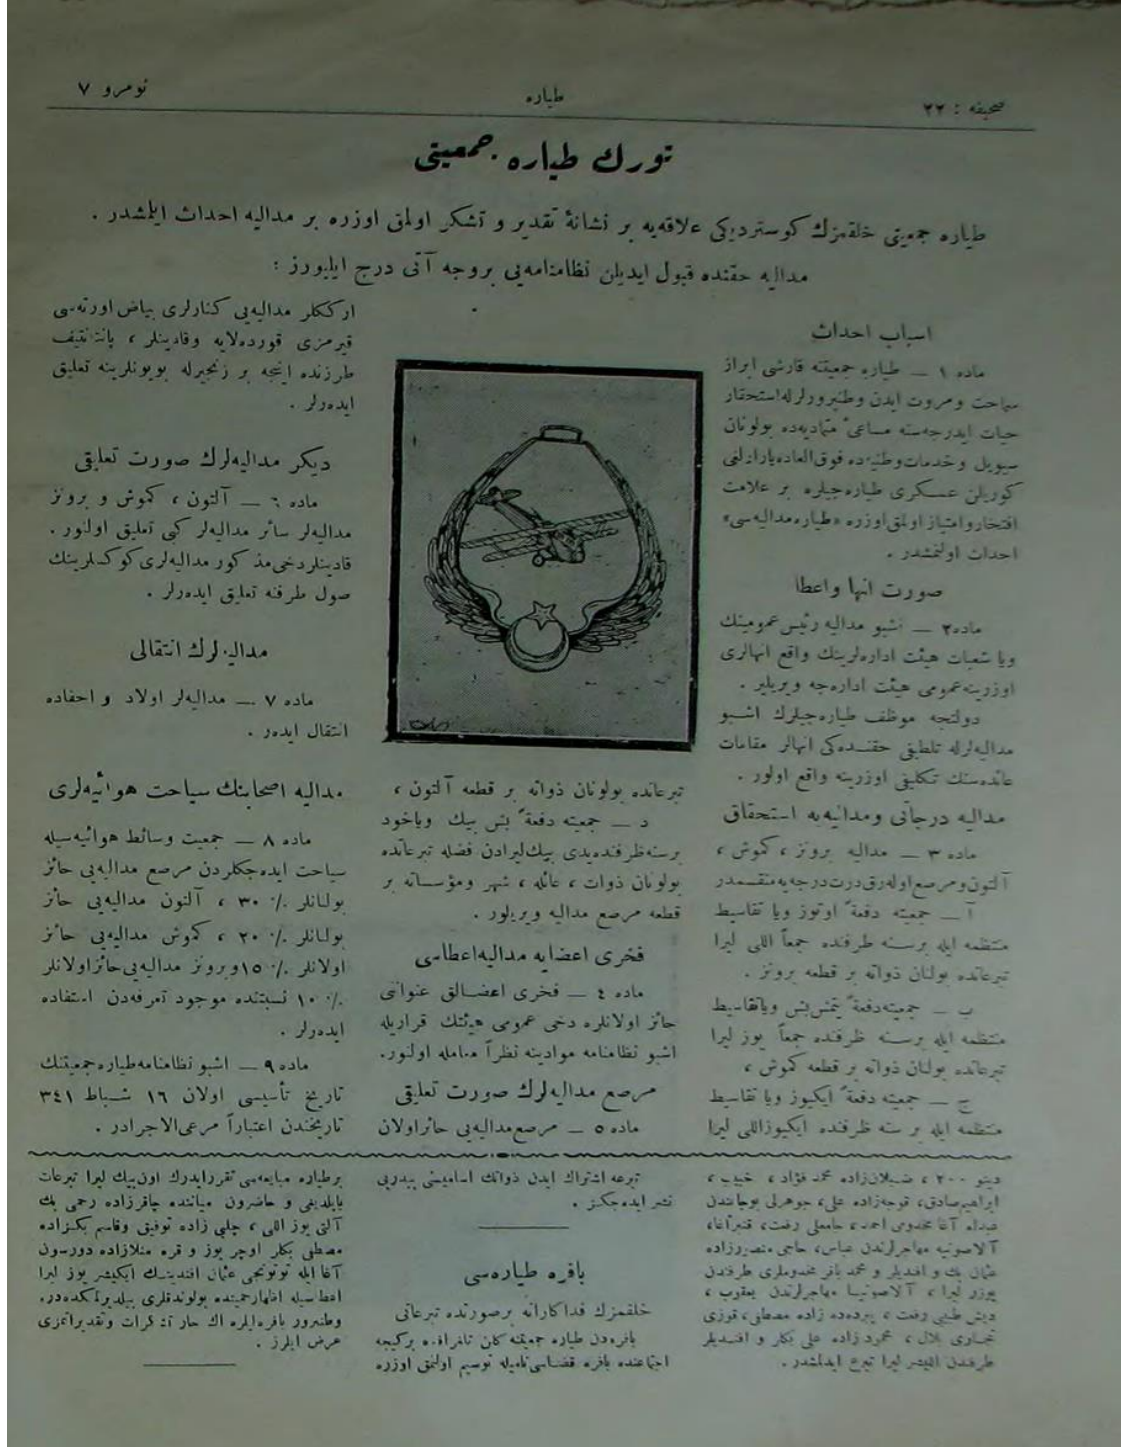 صحیفه : ٢٢
طیاره
نومرو ٧
تورك طیاره جمعیتی
طیاره جمعیتی خلقمزك كوستردیكی علاقه‌یه بر نشانهٔ تقدیر و تشكر اولمق اوزره بر مدالیه احداث ایلمشدر .
مدالیه حقنده قبول ایدیلن نظامنامه‌یی بروجه آتی درج ایلیورز :
اسباب احداث
ماده ١ — طیاره جمعیتنه قارشی ابراز
سماحت و مروت ایدن وطنپرورلرله استحقار
حیات ایدرجه‌سنه مساعیٔ متمادیه‌ده بولونان
سیویل و خدمات وطنیه‌ده فوق‌العاده یارارلغی
كوریلن عسكری طیاره‌جیلره بر علامت
افتخار و امتیاز اولمق اوزره «طیاره مدالیه‌سی»
احداث اولنمشدر .
صورت انها واعطا
ماده ٢ — اشبو مدالیه رئیس عمومینك
ویا شعبات هیئت اداره‌لرینك واقع انهالری
اوزرینه عمومی هیئت اداره‌جه ویریلیر .
دولتجه موظف طیاره‌جیلرك اشبو
مدالیه‌لرله تلطیفی حقنده‌كی انهالر مقامات
عائده‌سنك تكلیفی اوزرینه واقع اولور .
مدالیه درجاتی ومدالیه‌یه استحقاق
ماده ٣ — مدالیه برونز ، كموش ،
آلتون و مرصع اوله‌رق درت درجه‌یه منقسمدر
آ — جمعیته دفعةً اوتوز ویا تقاسیط
منتظمه ایله برسنه ظرفنده جمعاً اللی لیرا
تبرعاتده بولنان ذواته بر قطعه برونز .
ب — جمعیته دفعةً یتمش‌بش ویا تقاسیط
منتظمه ایله برسنه ظرفنده جمعاً یوز لیرا
تبرعاتده بولنان ذواته بر قطعه كموش ،
ج — جمعیته دفعةً ایكیوز ویا تقاسیط
منتظمه ایله بر سنه ظرفنده ایكیوزاللی لیرا
تبرعاتده بولونان ذواته بر قطعه آلتون ،
د — جمعیته دفعةً بش بیك ویاخود
برسنه ظرفنده یدی بیك لیرادن فضله تبرعاتده
بولونان ذوات ، عائله ، شهر ومؤسساته بر
قطعه مرصع مدالیه ویریلور .
فخری اعضایه مدالیه اعطاسی
ماده ٤ — فخری اعضالق عنوانی
حائز اولانلره دخی عمومی هیئتك قراریله
اشبو نظامنامه موادینه نظراً معامله اولنور.
مرصع مدالیه‌لرك صورت تعلیقی
ماده ٥ — مرصع مدالیه‌یی حائز اولان
ارككلر مدالیه‌یی كنارلری بیاض اورته‌سی
قیرمزی قورده‌لایه وقادینلر ، پانتانتیف
طرزنده اینجه بر زنجیرله بویونلرینه تعلیق
ایده‌رلر .
دیكر مدالیه‌لرك صورت تعلیقی
ماده ٦ — آلتون ، كموش و برونز
مدالیه‌لر سائر مدالیه‌لر كبی تعلیق اولنور .
قادینلر دخی مذكور مدالیه‌لری كوكسلرینك
صول طرفنه تعلیق ایده‌رلر .
مدالیه‌لرك انتقالی
ماده ٧ — مدالیه‌لر اولاد و احفاده
انتقال ایده‌ر .
مدالیه اصحابنك سیاحت هوائیه‌لری
ماده ٨ — جمعیت وسائط هوائیه‌سیله
سیاحت ایده‌جكلردن مرصع مدالیه‌یی حائز
بولنانلر ٪ ٣٠ ، آلتون مدالیه‌یی حائز
بولنانلر ٪ ٢٠ ، كموش مدالیه‌یی حائز
اولانلر ٪ ١٥ وبرونز مدالیه‌یی حائز اولانلر
٪ ١٠ نسبتنده موجود تعرفه‌دن استفاده
ایده‌رلر .
ماده ٩ — اشبو نظامنامه طیاره جمعیتنك
تاریخ تأسیسی اولان ١٦ شباط ٣٤١
تاریخندن اعتباراً مرعی‌الاجرادر .
دینو ٢٠٠ ، زاده محمد فؤاد ، خبیب ،
ابراهیم صادق، قوجه‌زاده علی، جوهرلی
آغا مخدومی احمد، رفعت، قنبرآغا،
آلاصونیه مهاجرلرندن عباس، حاجی منصورزاده
عثمان بك و افندیلر و محمد باقر مخدوملری طرفندن
یوزر لیرا ، آلاصونیا مهاجرلرندن یعقوب ،
دیش طبیبی رفعت ، زاده مصطفی،
تجاری بلال ، محمود زاده علی بكلر و افندیلر
طرفندن اللیشر لیرا تبرع ایدلمشدر .
تبرعه اشتراك ایدن ذواتك اسامیسنی پیدرپی
نشر ایده‌جكز .
بافره طیاره‌سی
خلقمزك فداكارانه برصورتده تبرعاتی
بافره‌دن طیاره جمعیتنه كلن تلغرافده بركیجه
اجتماعنده بافره قضاسی نامیله توسیم اولنمق اوزره
برطیاره مبایعه‌سی تقرر ایدرك اون‌بیك لیرا تبرعات
یاپلدیغی و حاضرون میاننده چاقرزاده رحمی بك
آلتی یوز اللی ، چلبی زاده توفیق وقاسم بكزاده
مصطفی بكلر اوچر یوز و قره منلازاده دورسون
آغا ایله توتونجی عثمان افندینك ایكیشر یوز لیرا
اعطاسیله اظهار حمیتده بولوندقلری بیلدیرلمكده‌در.
وطنپرور بافره‌لیلره اك حار تشكرات وتقدیراتمزی
عرض ایلرز .